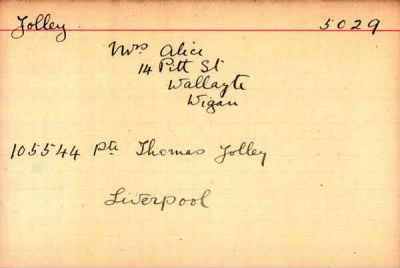 Jolley 5029
Mrs Alice
14 Pitt St
Wallagte
Wigan
105544 Pte Thomas Jolley
Liverpool